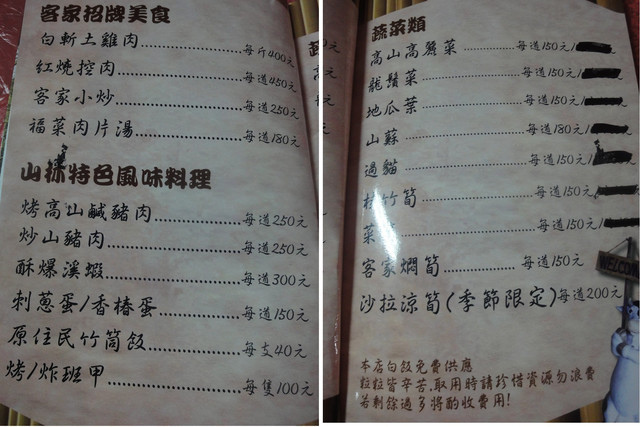 客家招牌美食
白斬土雞肉 每斤400元
紅燒控肉 每道450元
客家小炒 每道250元
福菜肉片湯 每道180元
山林特色風味料理
烤高山鹹豬肉 每道250元
炒山豬肉 每道250元
酥爆溪蝦 每道300元
刺蔥蛋/香椿蛋 每道150元
原住民竹筒飯 每支40元
烤/炸班甲 每隻100元
蔬菜類
高山高麗菜 每道150元/
龍鬚菜 每道150元/
地瓜葉 每道150元/
山蘇 每道180元/
過貓 每道150元/
桂竹筍 每道150元/
菜 每道150元/
客家燜筍 每道150元
沙拉涼筍(季節限定)每道200元
本店白飯免費供應
粒粒皆辛苦,取用時請珍惜資源勿浪費
若剩餘過多將酌收費用!
WELCOME